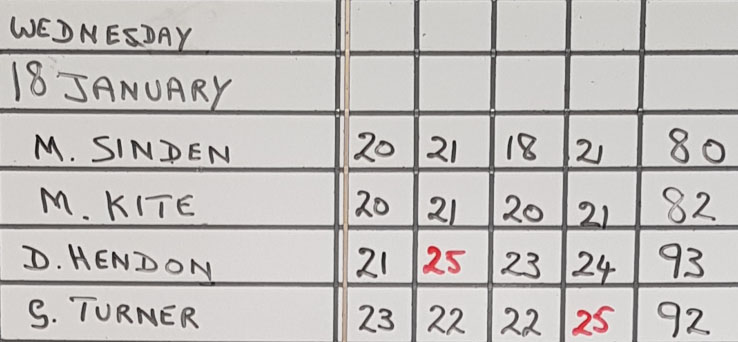 WEDNESDAY
18 JANUARY
M. SINDEN 20 21 18 21 80
M. KITE 20 21 20 21 82
D. HENDON 21 25 23 24 93
G. TURNER 23 22 22 25 92